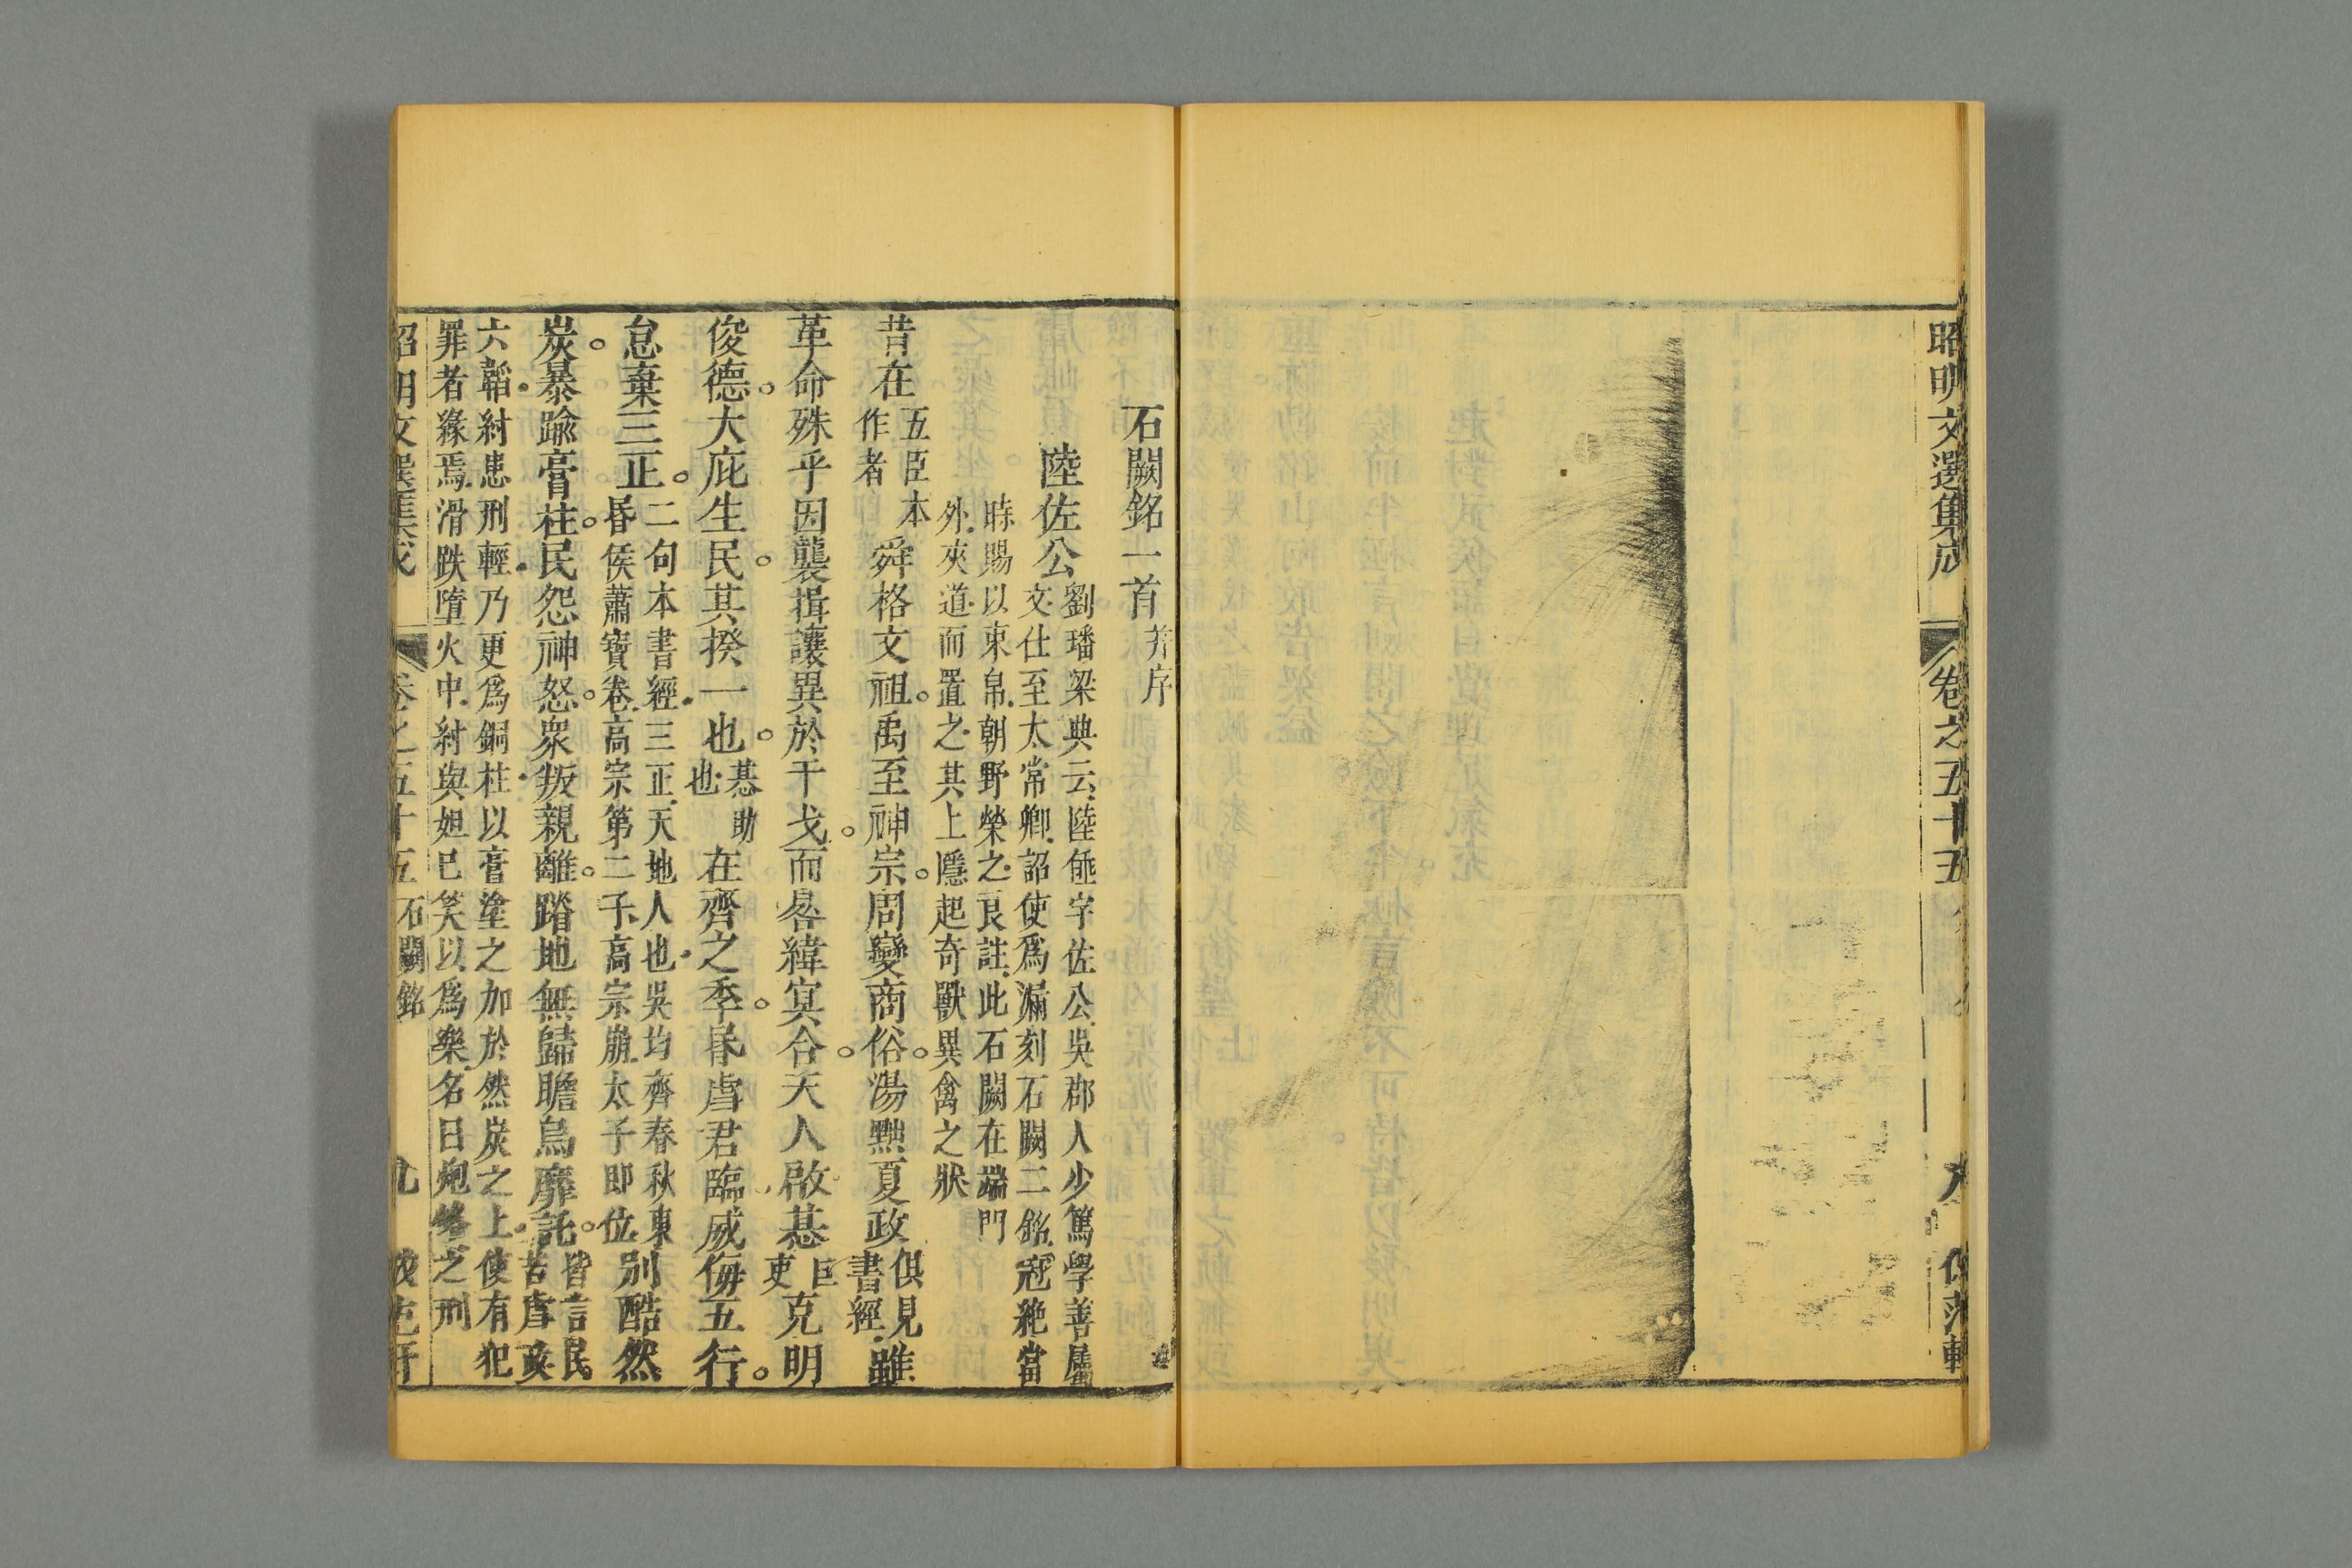 昭明文選集成 卷之五十五
石闕銘一首 并序
陸佐公 劉璠梁典云陸倕字佐公吳郡人少篤學善屬
文仕至太常卿詔使爲漏刻石闕二銘冠絶當
時賜以束帛朝野榮之良註此石闕在端門
外夾道而置之其上隱起奇獸異禽之狀
昔在 五臣本
作者 舜格文祖禹至神宗周變商俗湯黜夏政 俱見
書經 雖
革命殊乎因襲揖讓異於干戈而晷緯冥合天人啟惎 巨
吏 克明
俊德大庇生民其揆一也 惎助
也 在齊之季昬虐君臨威侮五行
怠棄三正 二句本書經三正天地人也吳均齊春秋東
昬侯蕭寶卷高宗第二子高宗崩太子即位 刳酷然
炭暴踰膏柱民怨神怒衆叛親離踏地無歸瞻烏靡託 皆言民
苦虐政
六韜紂患刑輕乃更爲銅柱以膏塗之加於然炭之上使有犯
罪者緣焉滑跌墮火中紂與妲己笑以爲樂名曰炮烙之刑
昭明文選集成 卷之五十五 石闕銘 九